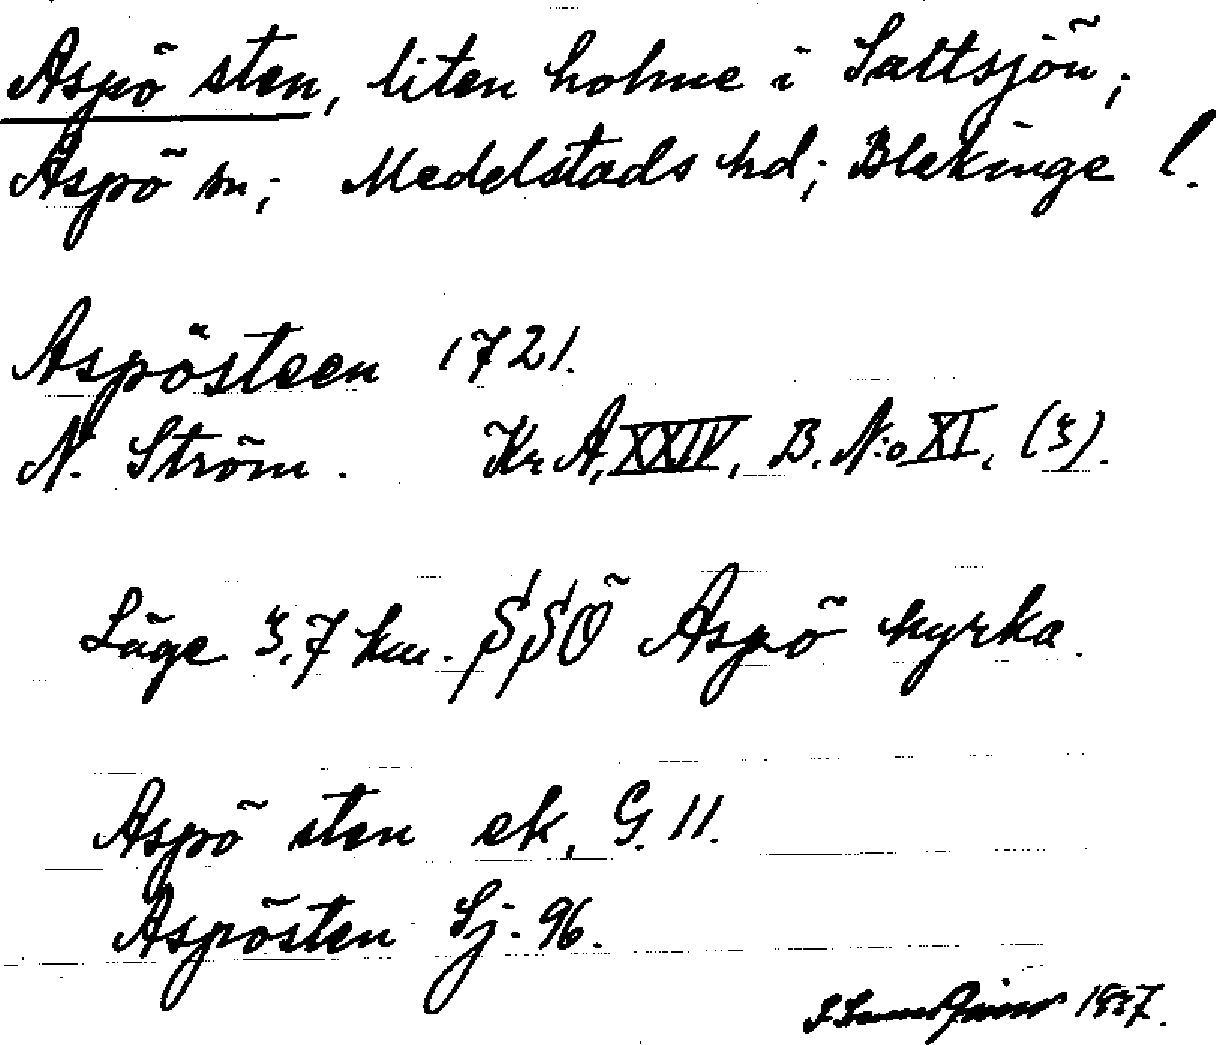 Aspö sten, liten holme i Saltsjön;
Aspö sn; Medelstads hd; Blekinge l.
Aspösteen 1721.
N. Ström. Kr. A, XXIV, B. N:o XI, (3).
Läge 3,7 km. SSÖ Aspö kyrka.
Aspö sten ek, G. 11.
Aspösten Sj. 96.
1937.